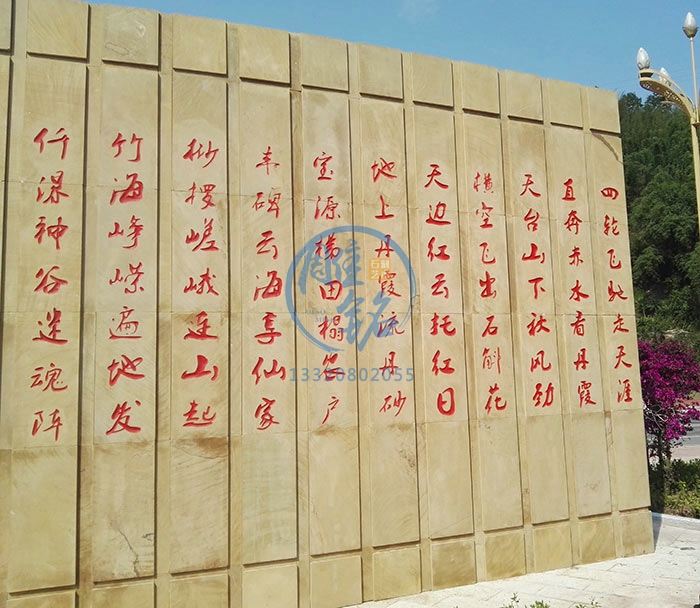 四轮飞驰走天涯
直奔赤水看丹霞
天台山下秋风劲
横空飞出石斛花
天边红云托红日
地上丹霞流丹砂
宝源梯田榻户
丰碑云海享仙家
桫椤嵯峨连山起
竹海峥嵘遍地发
仟瀑神谷迷魂阵
雕铭